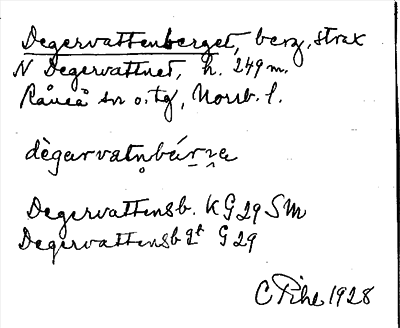 Degervattenberget, berg, strax
N Degervattnet, h. 249 m.
Råneå sn o. tg, Norrb. l.
dègarvatn̥bár̲n̯a
Degervattensb. KG29 SM
Degervattensbgt G29
C Pihl 1928